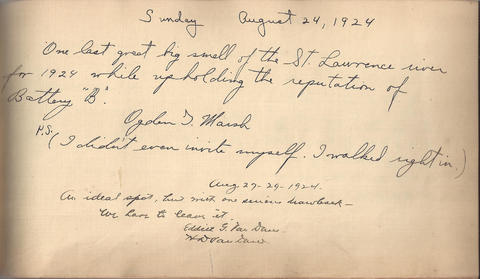 Sunday August 24, 1924
One last great big smell of the St. Lawrence river
for 1924 while upholding the reputation of
Battery "B".
Ogden T. Marsh
P.S.
(I didn't even invite myself. I walked right in.)
Aug 27-29-1924.
An ideal spot, but with one serious drawback—
We have to leave it.
G. Van